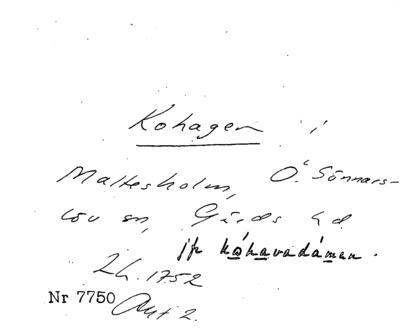 Kohagen i
Maltesholm, Ö. Sönnars-
löv sn, Gärds hd.
jfr kóhavadámen.
Lh. 1752
Nr 7750 Akt 2.